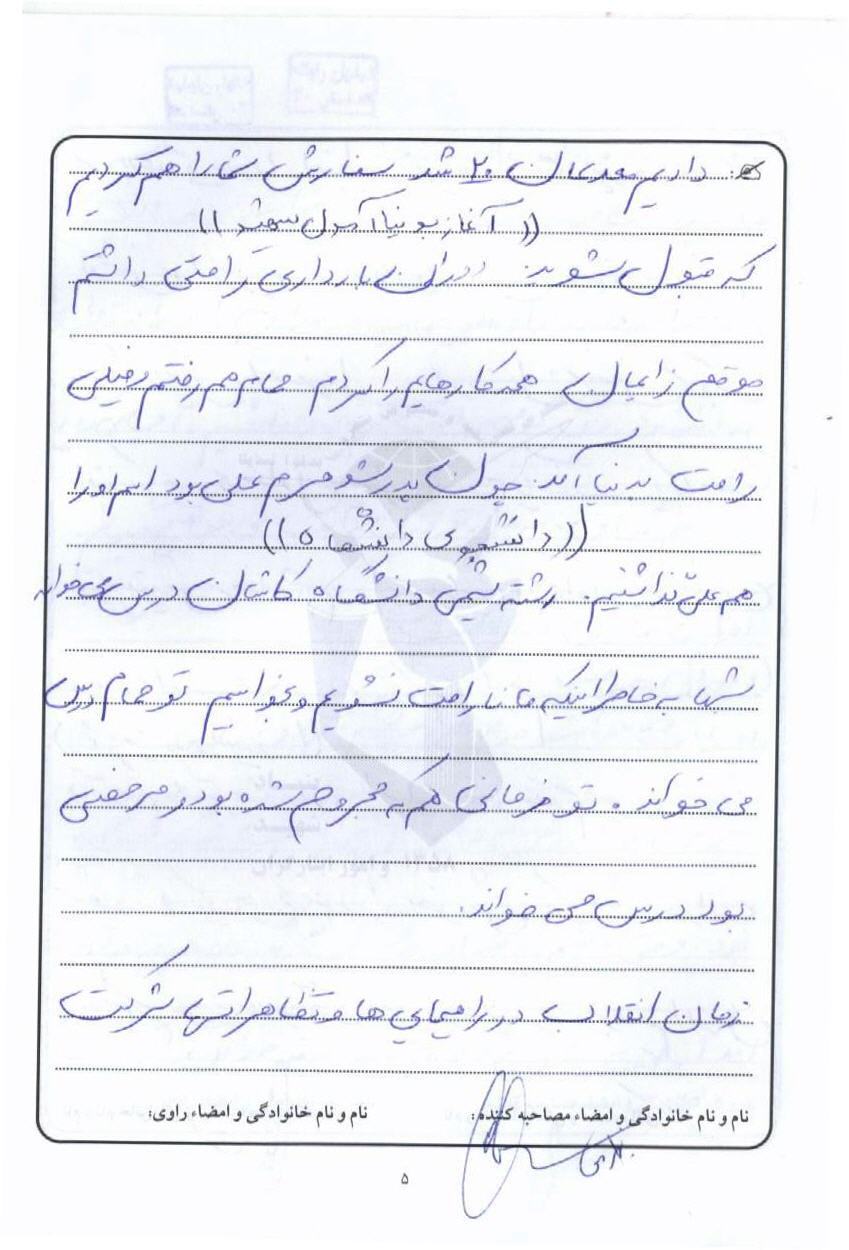 ج: دادیم معدلمان ۲۰ شد سفارش شما را هم کردیم
(( آغاز به دنیا آمدن شهید ))
که قبول شوید. دوران بارداری راحتی داشتم
موقع زایمان همه کارهایم را کردم حمام هم رفتم و خیلی
راحت به دنیا آمد چون پدر شوهرم علی بود اسم او را
(( دانشجوی دانشگاه ))
هم علی گذاشتیم. رشته شیمی دانشگاه کاشان درس می خواند
شبها به خاطر اینکه ما ناراحت نشویم و بخوابیم تو حمام درس
می خواند. تو زمانی هم که مجروح شده بود و مرخصی
بود درس می خواند.
زمان انقلاب در راهپیمایی ها و تظاهراتها شرکت
نام و نام خانوادگی و امضاء مصاحبه کننده:
نام و نام خانوادگی و امضاء راوی:
۵